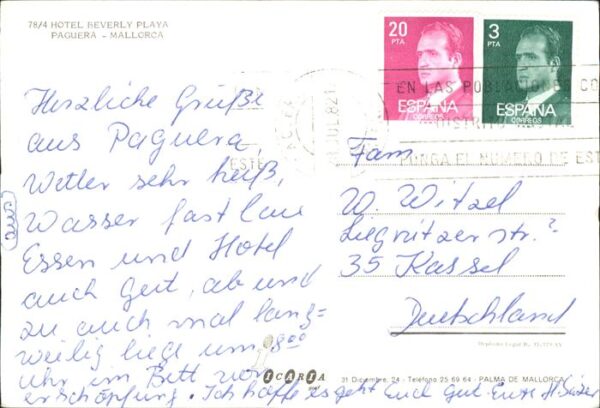 78/4 HOTEL BEVERLY PLAYA
PAGUERA - MALLORCA
20
PTA
ESPAÑA
CORREOS
3
PTA
ESPAÑA
CORREOS
JUL 82
EN LAS POBLACIONES CO
DISTRITO
PONGA EL NUMERO DE ES
Herzliche Grüße
aus Paguera,
Wetter sehr heiß,
Wasser fast lau
Essen und Hotel
auch gut, ab und
zu auch mal lang=
weilig liege um 8 00
Uhr im Bett vor
erschöpfung. Ich hoffe es geht Euch gut. Eure
Fam.
W. Witzel
Liegnitzerstr. 2
35 Kassel
Deutschland
ICARIA
31 Dicembre, 24 - Teléfono 25 69 64 - PALMA DE MALLORCA